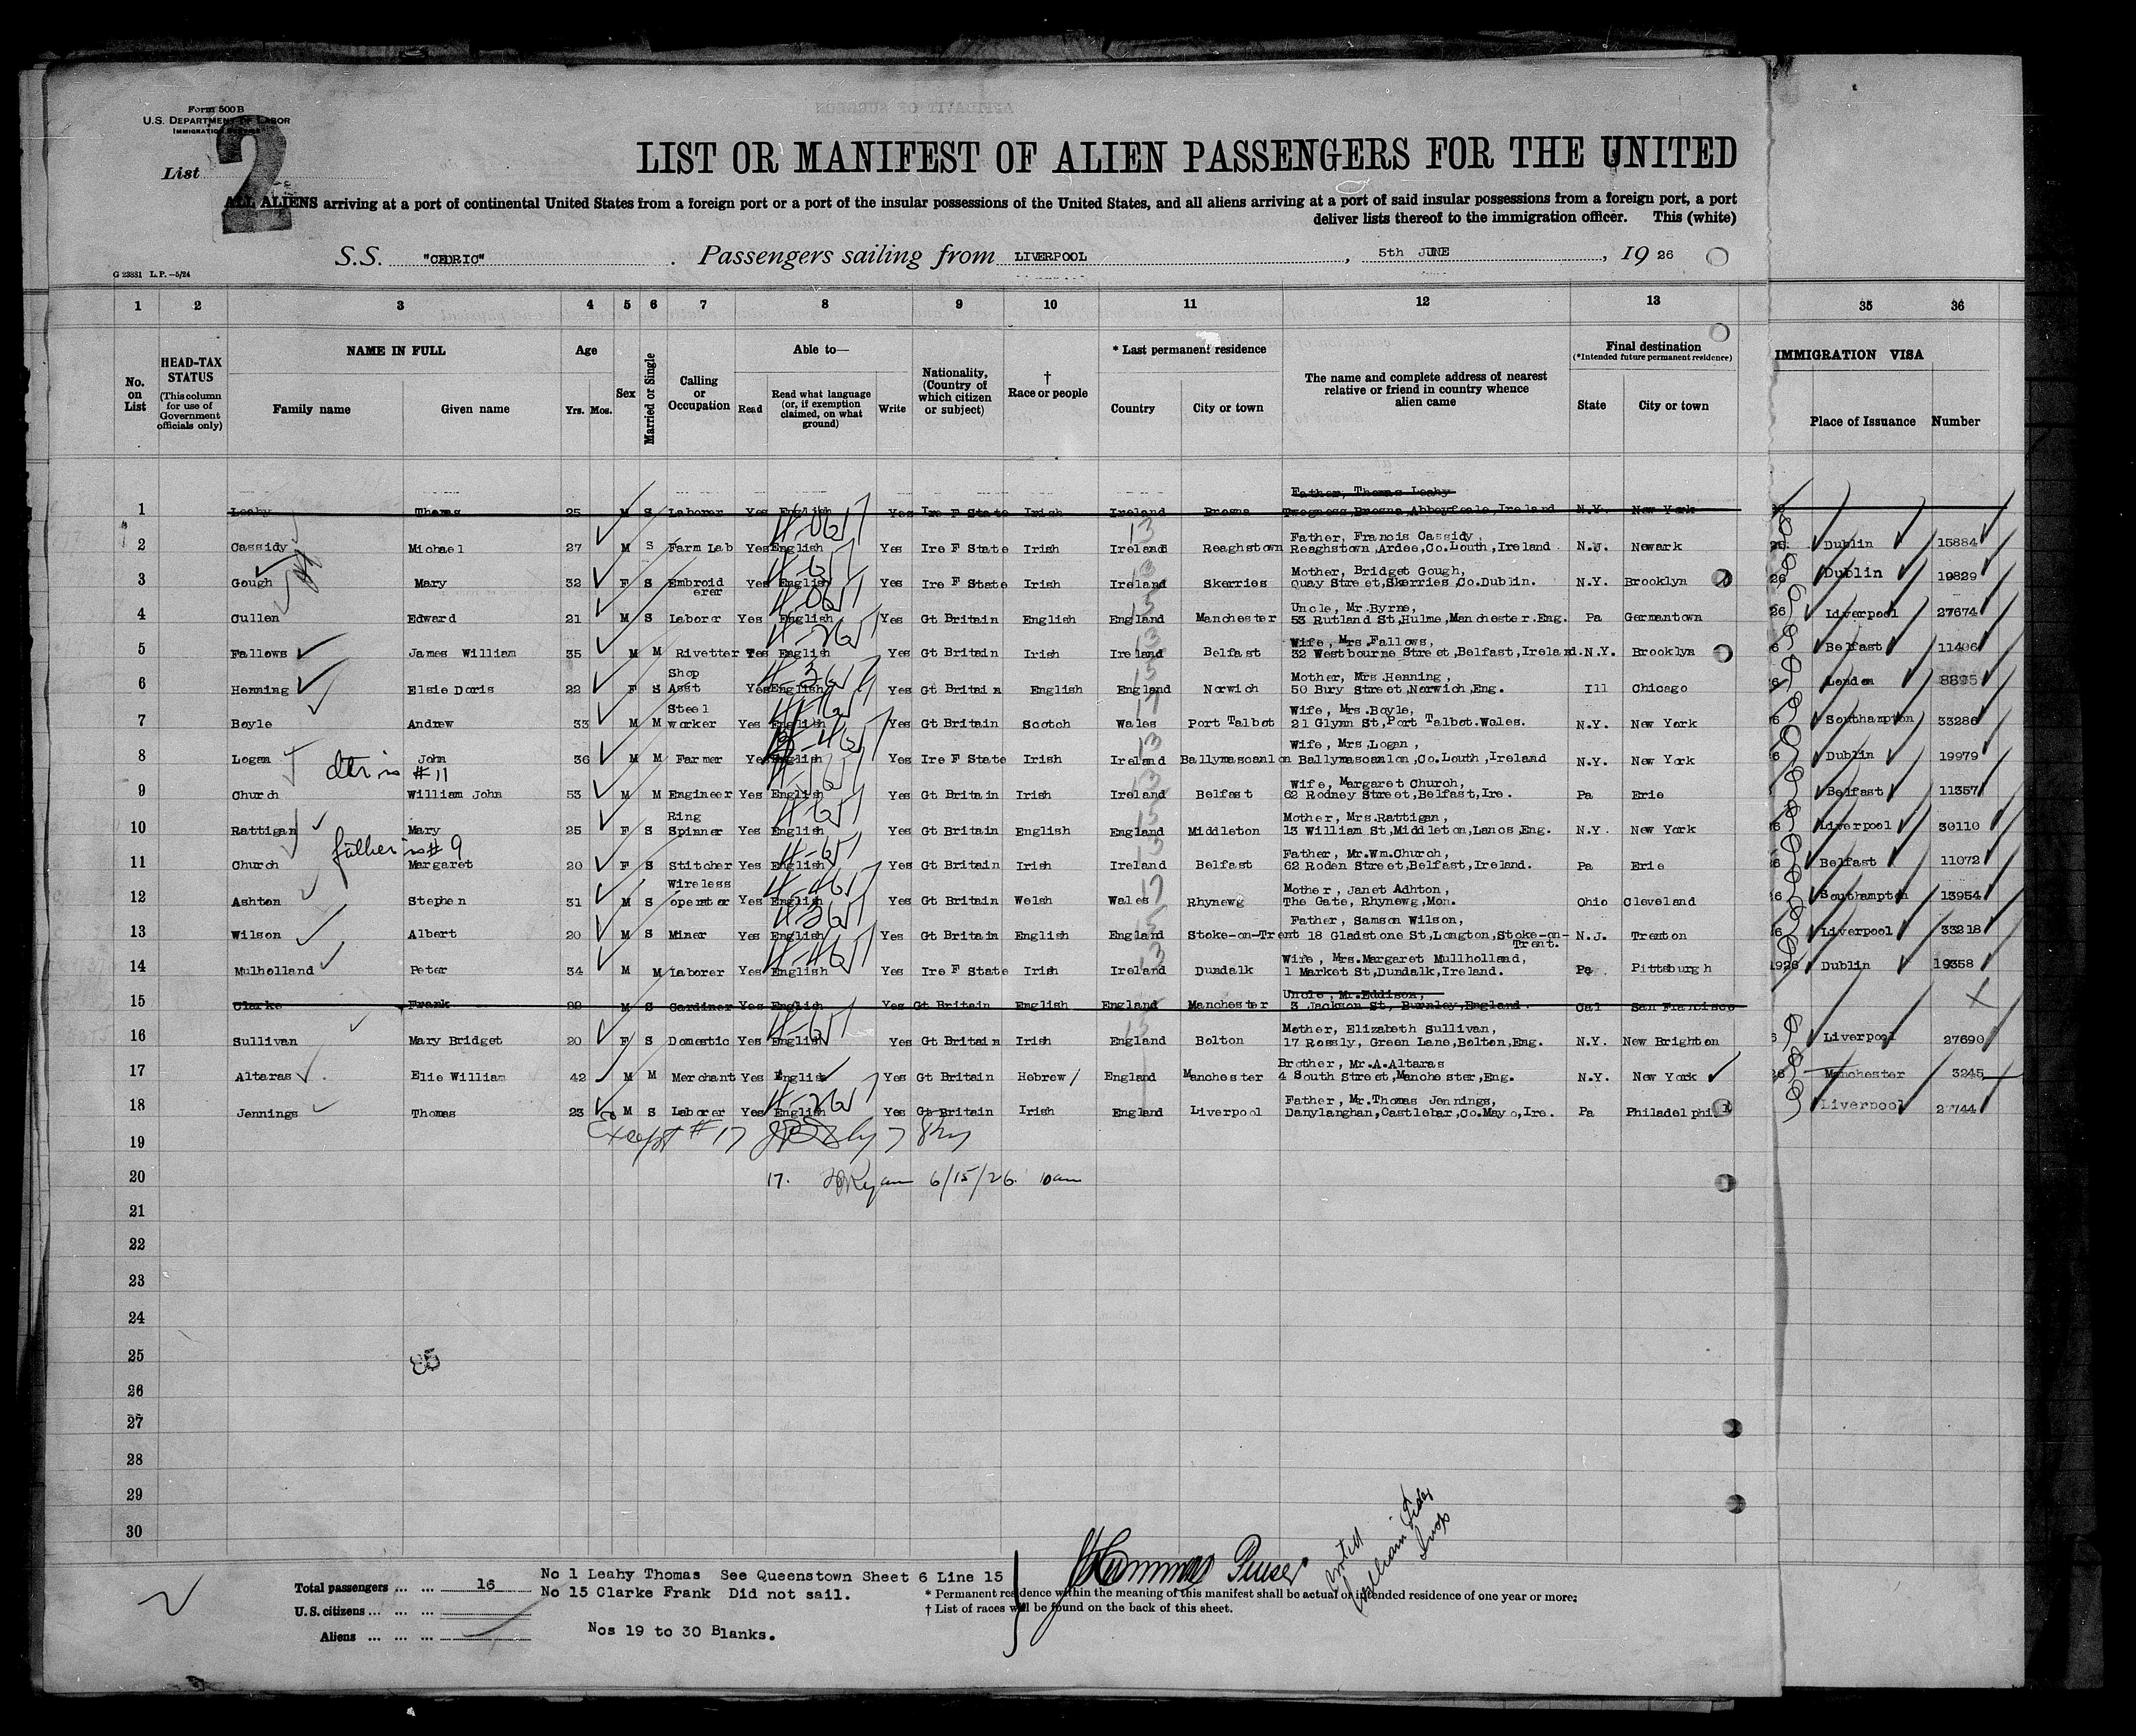 Form 500B
U.S. DEPARTMENT OF LABOR
IMMIGRATION SERVICE
List 2
LIST OR MANIFEST OF ALIEN PASSENGERS FOR THE UNITED
ALL ALIENS arriving at a port of continental United States from a foreign port or a port of the insular possessions of the United States, and all aliens arriving at a port of said insular possessions from a foreign port, a port
deliver lists thereof to the immigration officer. This (white)
S.S. "CEDRIC" . Passengers sailing from LIVERPOOL , 5th JUNE , 19 26
G 23881 L.P.—5/24
1 2 3 4 5 6 7 8 9 10 11 12 13 35 36
No. on List
HEAD-TAX STATUS (This column for use of Government officials only)
NAME IN FULL
Family name Given name
Age
Yrs. Mos.
Sex
Married or Single
Calling or Occupation
Able to—
Read
Read what language (or, if exemption claimed, on what ground)
Write
Nationality, (Country of which citizen or subject)
† Race or people
* Last permanent residence
Country City or town
The name and complete address of nearest relative or friend in country whence alien came
Final destination
(*Intended future permanent residence)
State City or town
IMMIGRATION VISA
Place of Issuance Number
Father, Thomas Leahy
1 Leahy Thomas 25 M S Laborer Yes English Yes Ire F State Irish Ireland Brosna Brosna, Abbeyfeale, Ireland N.Y. New York
Father, Francis Cassidy,
2 Cassidy Michael 27 M S Farm Lab Yes English Yes Ire F State Irish Ireland Reaghstown Reaghstown, Ardee, Co. Louth, Ireland N.J. Newark Dublin 15884
Mother, Bridget Gough,
3 Gough Mary 32 F S Embroid erer Yes English Yes Ire F State Irish Ireland Skerries Quay Street, Skerries Co. Dublin. N.Y. Brooklyn 26 Dublin 19829
Uncle, Mr. Byrne,
4 Cullen Edward 21 M S Laborer Yes English Yes Gt Britain English England Manchester 53 Rutland St, Hulme, Manchester. Eng. Pa Germantown 26 Liverpool 27674
Wife, Mrs. Fallows,
5 Fallows James William 35 M M Rivetter Yes English Yes Gt Britain Irish Ireland Belfast 32 Westbourne Street, Belfast, Ireland. N.Y. Brooklyn 6 Belfast 11406
Mother, Mrs Henning,
6 Henning Elsie Doris 22 F S Shop Asst Yes English Yes Gt Britain English England Norwich 50 Bury Street, Norwich, Eng. Ill Chicago London 8895
Wife, Mrs. Boyle,
7 Boyle Andrew 33 M M Steel worker Yes English Yes Gt Britain Scotch Wales Port Talbot 21 Glynn St, Port Talbot. Wales. N.Y. New York 6 Southampton 33286
Wife, Mrs. Logan,
8 Logan John 36 M M Farmer Yes English Yes Ire F State Irish Ireland Ballymascanlon Ballymascanlon, Co. Louth, Ireland N.Y. New York 6 Dublin 19979
dtr is #11
Wife, Margaret Church,
9 Church William John 53 M M Engineer Yes English Yes Gt Britain Irish Ireland Belfast 62 Rodney Street, Belfast, Ire. Pa Erie Belfast 11357
Mother, Mrs. Rattigan,
10 Rattigan Mary 25 F S Ring Spinner Yes English Yes Gt Britain English England Middleton 13 William St, Middleton, Lancs Eng. N.Y. New York 6 Liverpool 30110
father is #9
Father, Mr. Wm. Church,
11 Church Margaret 20 F S Stitcher Yes English Yes Gt Britain Irish Ireland Belfast 62 Roden Street, Belfast, Ireland. Pa Erie 26 Belfast 11072
Mother, Janet Adhton,
12 Ashton Stephen 31 M S Wireless operator Yes English Yes Gt Britain Welsh Wales Rhynewg The Gate, Rhynewg, Mon. Ohio Cleveland 6 Southampton 13954
Father, Samson Wilson,
13 Wilson Albert 20 M S Miner Yes English Yes Gt Britain English England Stoke-on-Trent 18 Gladstone St, Longton, Stoke-on-Trent. N.J. Trenton 6 Liverpool 33218
Wife, Mrs. Margaret Mullholland,
14 Mulholland Peter 34 M M Laborer Yes English Yes Ire F State Irish Ireland Dundalk 1 Market St, Dundalk, Ireland. Pa Pittsburgh 1926 Dublin 19358
Uncle, Mr. Eddison,
15 Clarke Frank 28 M S Gardiner Yes English Yes Gt Britain English England Manchester 3 Jackson St, Burnley, England. Cal San Francisco
Mother, Elizabeth Sullivan,
16 Sullivan Mary Bridget 20 F S Domestic Yes English Yes Gt Britain Irish England Bolton 17 Rossly, Green Lane, Bolton, Eng. N.Y. New Brighton 6 Liverpool 27690
Brother, Mr. A. Altaras
17 Altaras Elie William 42 M M Merchant Yes English Yes Gt Britain Hebrew England Manchester 4 South Street, Manchester, Eng. N.Y. New York 26 Manchester 3245
Father, Mr. Thomas Jennings,
18 Jennings Thomas 23 M S Laborer Yes English Yes Gt Britain Irish England Liverpool Danylanghan, Castlebar, Co. Mayo, Ire. Pa Philadelphia Liverpool 27744
19 Except #17
20 17. Ryan 6/15/26. 10am
21
22
23
24
25
26
27
28
29
30
85
Total passengers ... ... 16
U.S. citizens ... ... ...
Aliens ... ... ...
No 1 Leahy Thomas See Queenstown Sheet 6 Line 15
No 15 Clarke Frank Did not sail.
Nos 19 to 30 Blanks.
Purser
* Permanent residence within the meaning of this manifest shall be actual or intended residence of one year or more;
† List of races will be found on the back of this sheet.